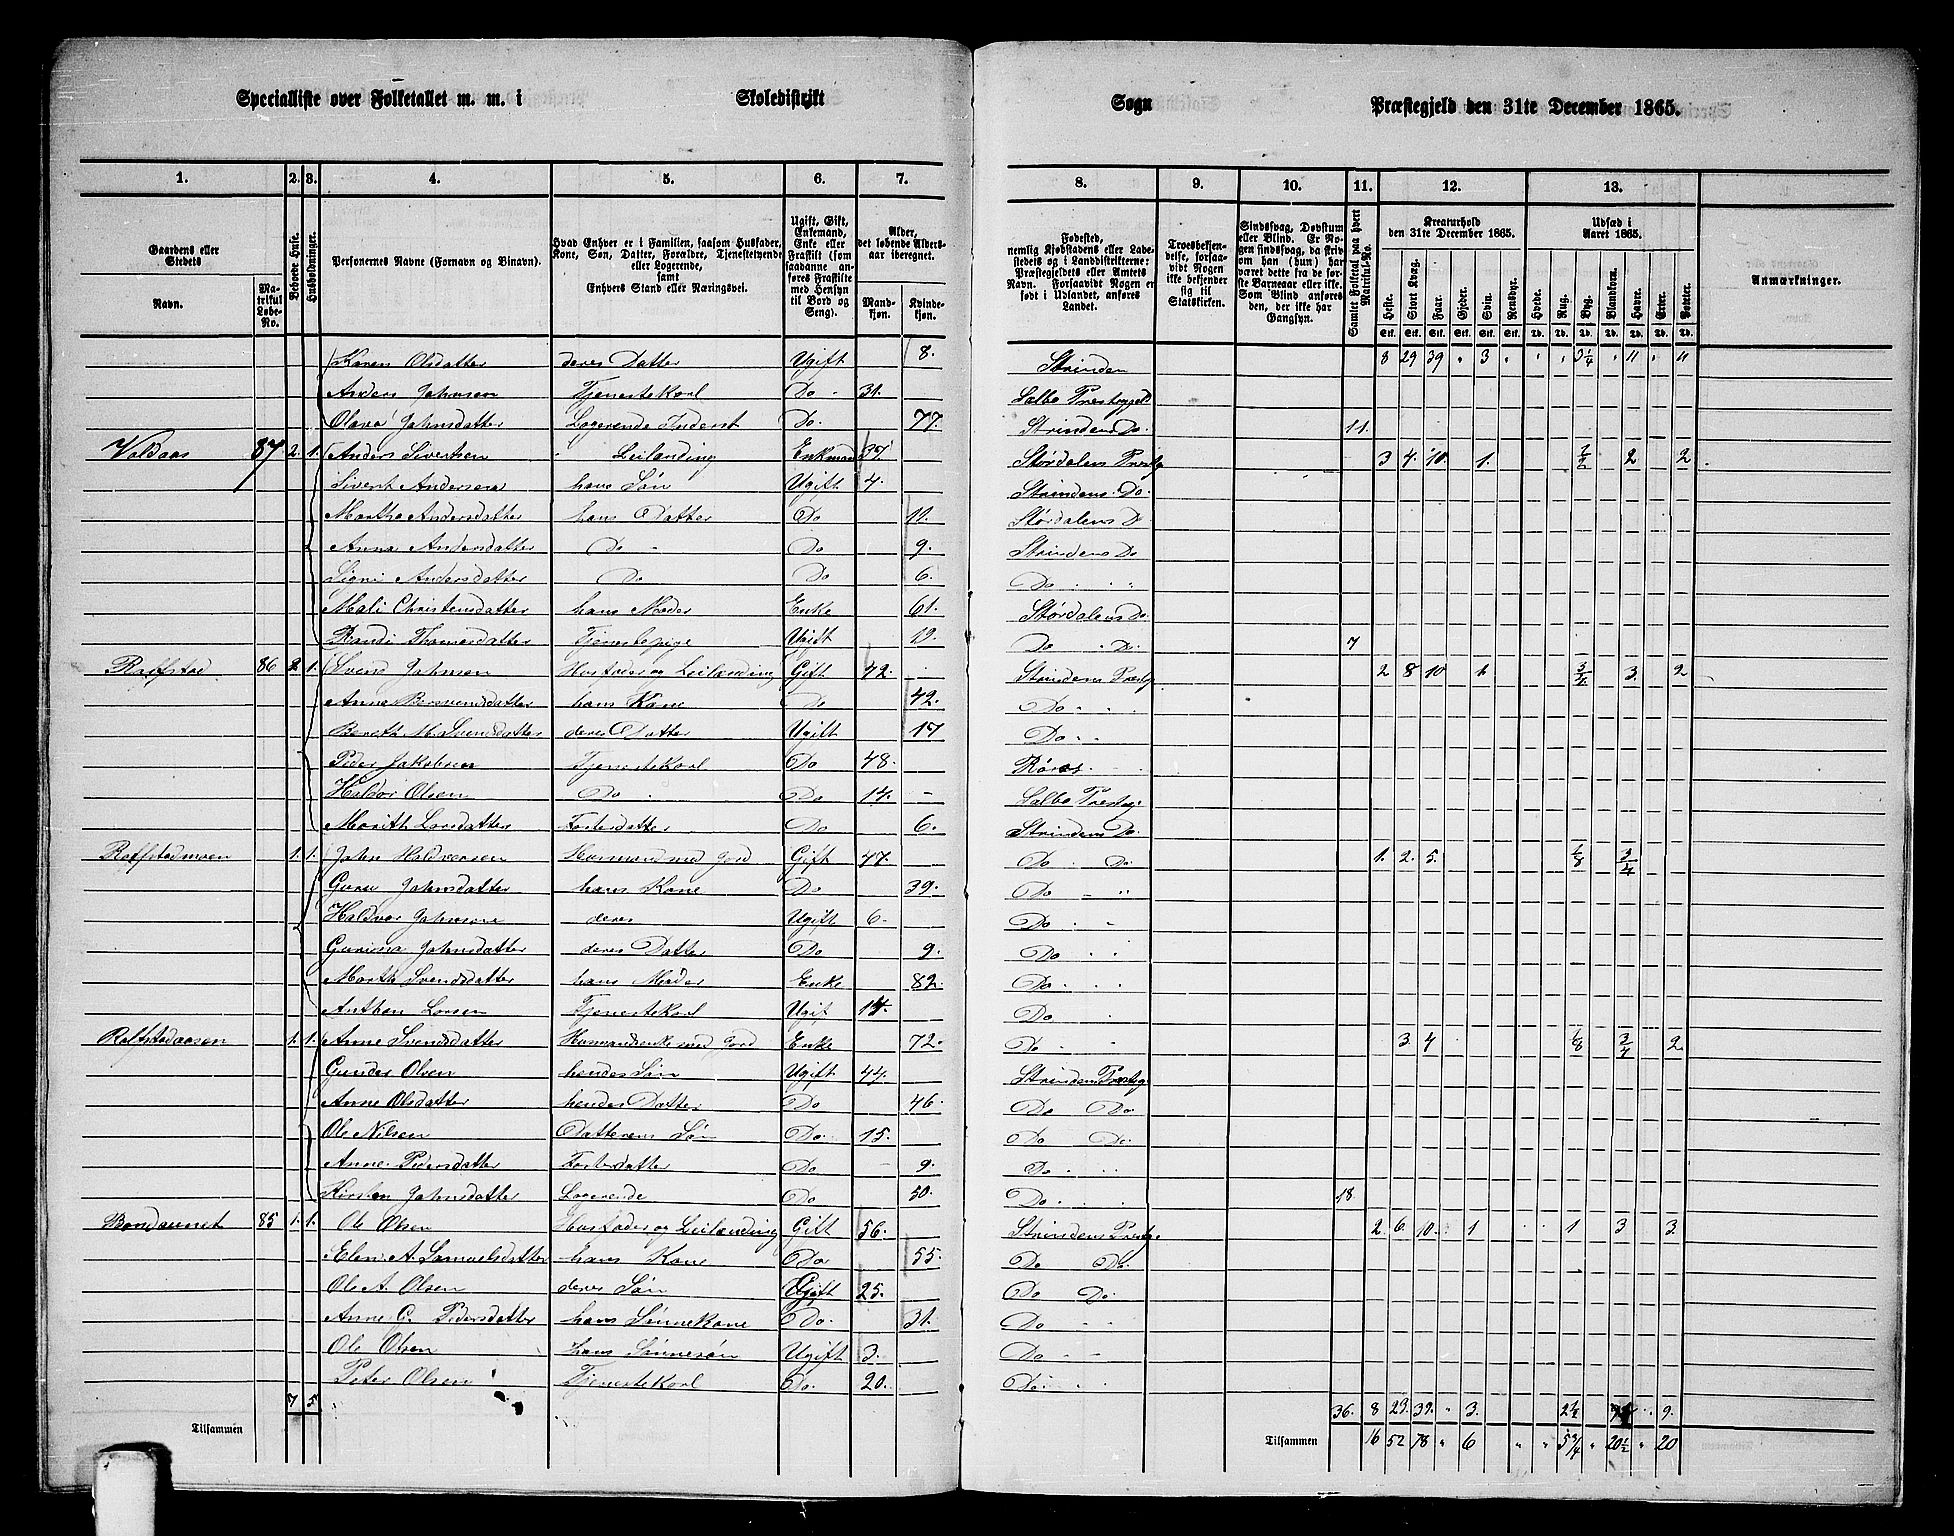 Specialliste over Folketallet m. m. i Skoledistrikt Sogn Præstegjeld den 31te December 1865.
1. 2. 3. 4. 5. 6. 7. 8. 9. 10. 11. 12. 13.
Gaardens eller Stedets
Navn.
Matrikul Løbe-No.
Beboede Huse.
Husholdninger.
Personernes Navne (Fornavn og Binavn).
Hvad Enhver er i Familien, saasom Husfader, Kone, Søn, Datter, Forældre, Tjenestetyende eller Logerende, samt Enhvers Stand eller Næringsvei.
Ugift, Gift, Enkemand, Enke eller Fraskilt (som saadanne anføres Fraskilte med Hensyn til Bord og Seng).
Alder, det løbende Alders- aar iberegnet.
Mandkjøn. Kvindekjøn.
Fødested, nemlig Kjøbstadens eller Ladestedets og i Landdistrikterne: Præstegjeldets eller Amtets Navn. Forsaavidt Nogen er født i Udlandet, anføres Landet.
Troesbekjendelse, forsaavidt Nogen ikke bekjender sig til Statskirken.
Sindssvag, Døvstum eller Blind. Er Nogen sindssvag, da skrives om han (hun) har været dette fra de første Barneaar eller ikke. Som Blind anføres den, der ikke har Gangsyn.
Samlet Folketal paa hvert Matrikul-No.
Kreaturhold den 31te December 1865.
Heste. Stort Kvæg. Faar. Gjeder. Svin. Rensdyr.
Udsæd i Aaret 1865.
Hvede. Rug. Byg. Blandkorn. Havre. Erter. Poteter.
Anmærkninger.
Karen Olsdatter deres Datter Ugift 8. Strinden 8 29 39 " 3 " " 3¼ " 11 " 11
Anders Johnsen Tjenestekarl Do 31. Selbo Præstegjeld
Johnsdatter Logerende Inderst Do. 77. Strindens Do. 11.
Valdaas 87 2. 1. Anders Sivertsen Leilænding Enkmand 37. Størdalens Prestg 3 4. 10. 1. ½ 2 2
Sivert Andersen hans Søn Ugift 4. Strindens Do.
Martha Andersdatter hans Datter Do 11. Størdalens D
Anna Andersdatter Do Do 9. Strindens Do
Signi Andersdatter Do Do 6. Do
Mali Christensdatter hans Moder Enke 61. Størdalens Do
Randi Thomasdatter Tjenestepige Ugift 19. Do Do. 7
Rolfstad 86 2. 1. Svend Johnsen Husfader og Leilænding Gift 42. Strindens Prestg 2 8 10. 1. ¾ 3. 2
Anne Bersvendsdatter hans Kone Do 42. Do
Bereth M. Svendsdatter deres Datter Ugift 17 Do
Peder Jakobsen Tjenestekarl Do 48. Røros.
Haldor Olsen Do Do 14. Selbo Prestg
Marith Larsdatter Fosterdatter Do 6. Strindens Do.
Rolfstadmoen 1. 1. John Haldorsen Husmand med Jord Gift 47. Do Do. 1. 2. 5. ⅛ ¾
Guru Johnsdatter hans Kone Do 39. Do
Haldvor Johnsen deres Ugift 6. Do
Gurina Johnsdatter deres Datter Do 9. Do
Marth Svendsdatter hans Moder Enke 82. Do
Anthon Larsen Tjenestekarl Ugift 14. Do
Rolfstadaasen 1. 1. Anne Svendsdatter Husmandsenke med Jord Enke 72. Do 3. 4 ⅛ ¾ 2.
Gunder Olsen hendes Søn Ugift 44. Strindens Prestg.
Anne Olsdatter hendes Datter Do 46. Do Do.
Ole Nilsen Datterens Søn Do. 15. Do Do.
Anne Pedersdatter Fosterdatter Do 9. Do
Kirsten Johnsdatter Logerende Do 50. Do 18.
Bondaunet 85 1. 1. Ole Olsen Husfader og Leilænding Gift 56. Strindens Prestg. 2. 6. 10. 1 1 3 3.
Elen A. Samuelsdatter hans Kone Do 55. Do Do.
Ole A. Olsen deres Søn Ugift 25. Do Do
Anne C. Pedersdatter hans Sønnekone Do. 31. Do
Ole Olsen hans Sønnesøn Ugift 3. Do
Peter Olsen Tjenestekarl Do. 20. Do
7 5 36. 8 23. 39. " 3. 2½ 9.
Tilsammen Tilsammen 16 52 78 " 6 " " 5¾ " 20½ " 20